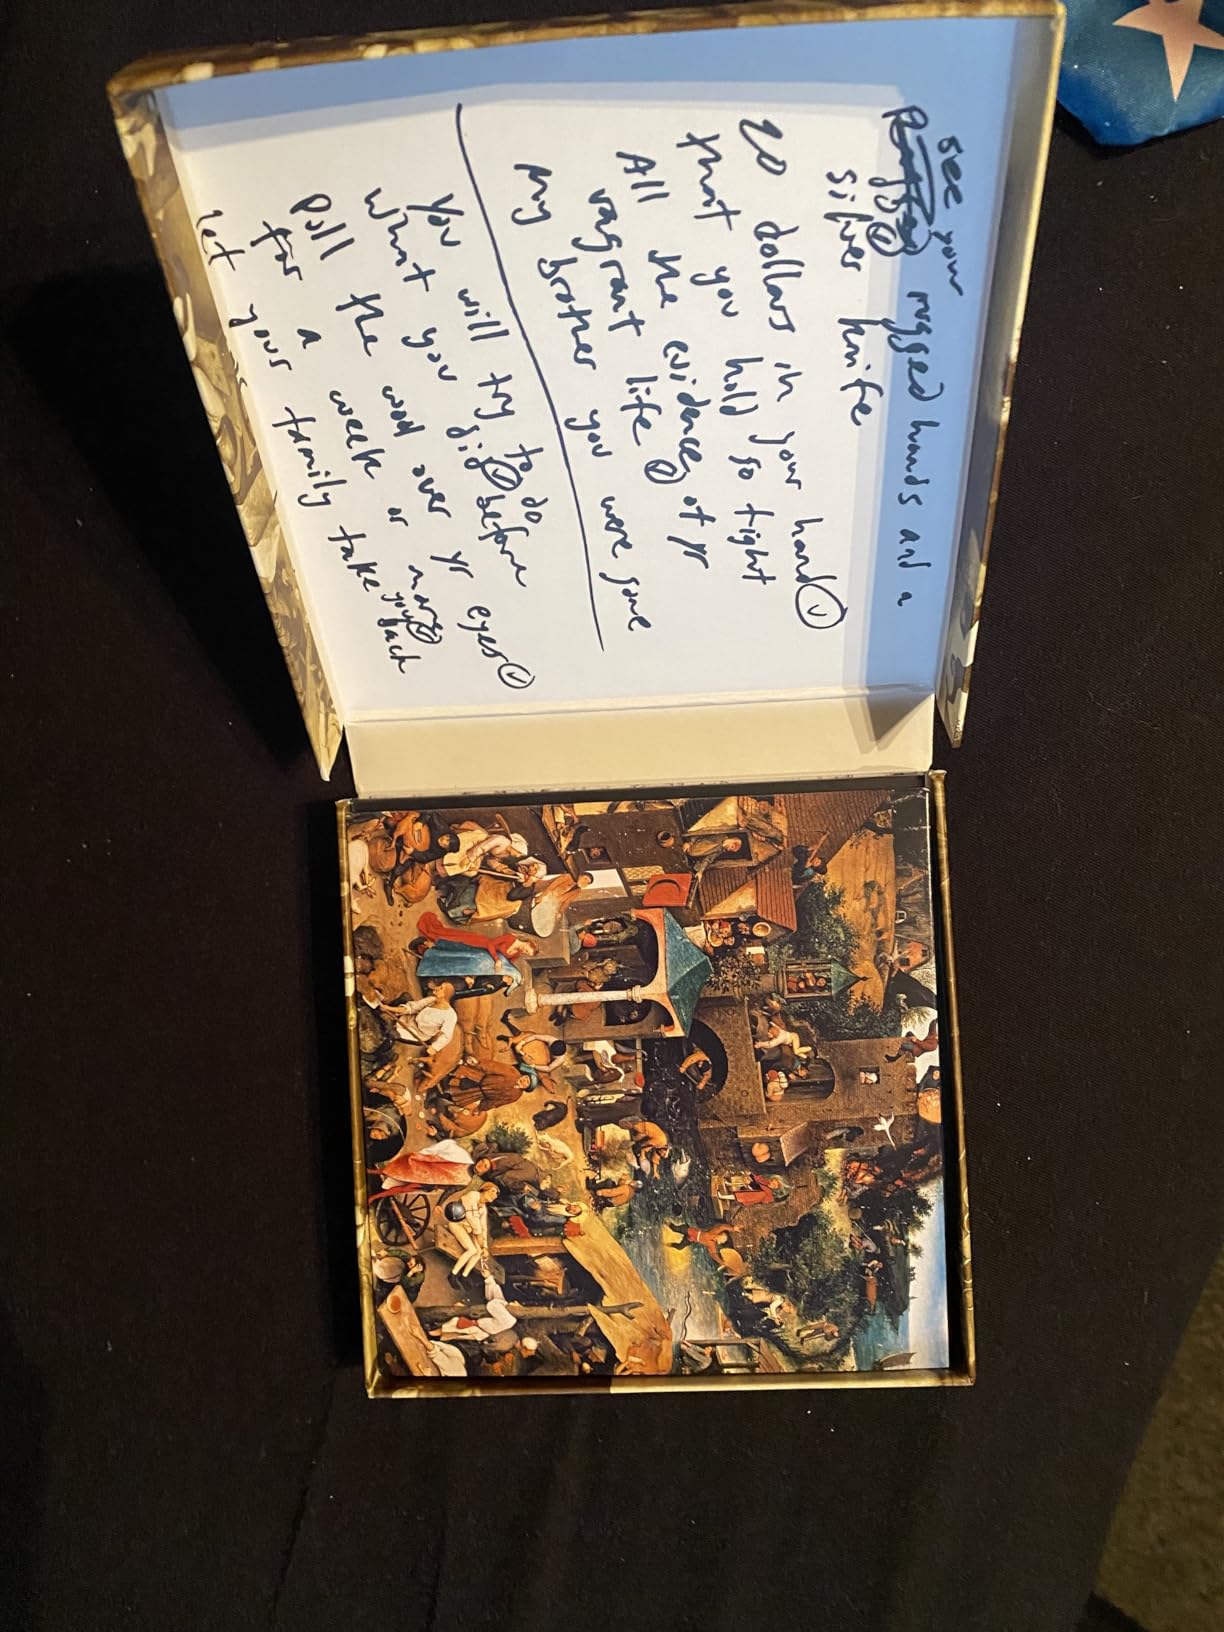 see your
rugged hands and a
silver knife
20 dollars in your hand ✓
that you hold so tight
All the evidence of yr
vagrant life ✓
My brother you were gone
You will try to do
What you did ✓ before
Pull the wool over yr eyes ✓
for a week or more ✓
let your family take you back